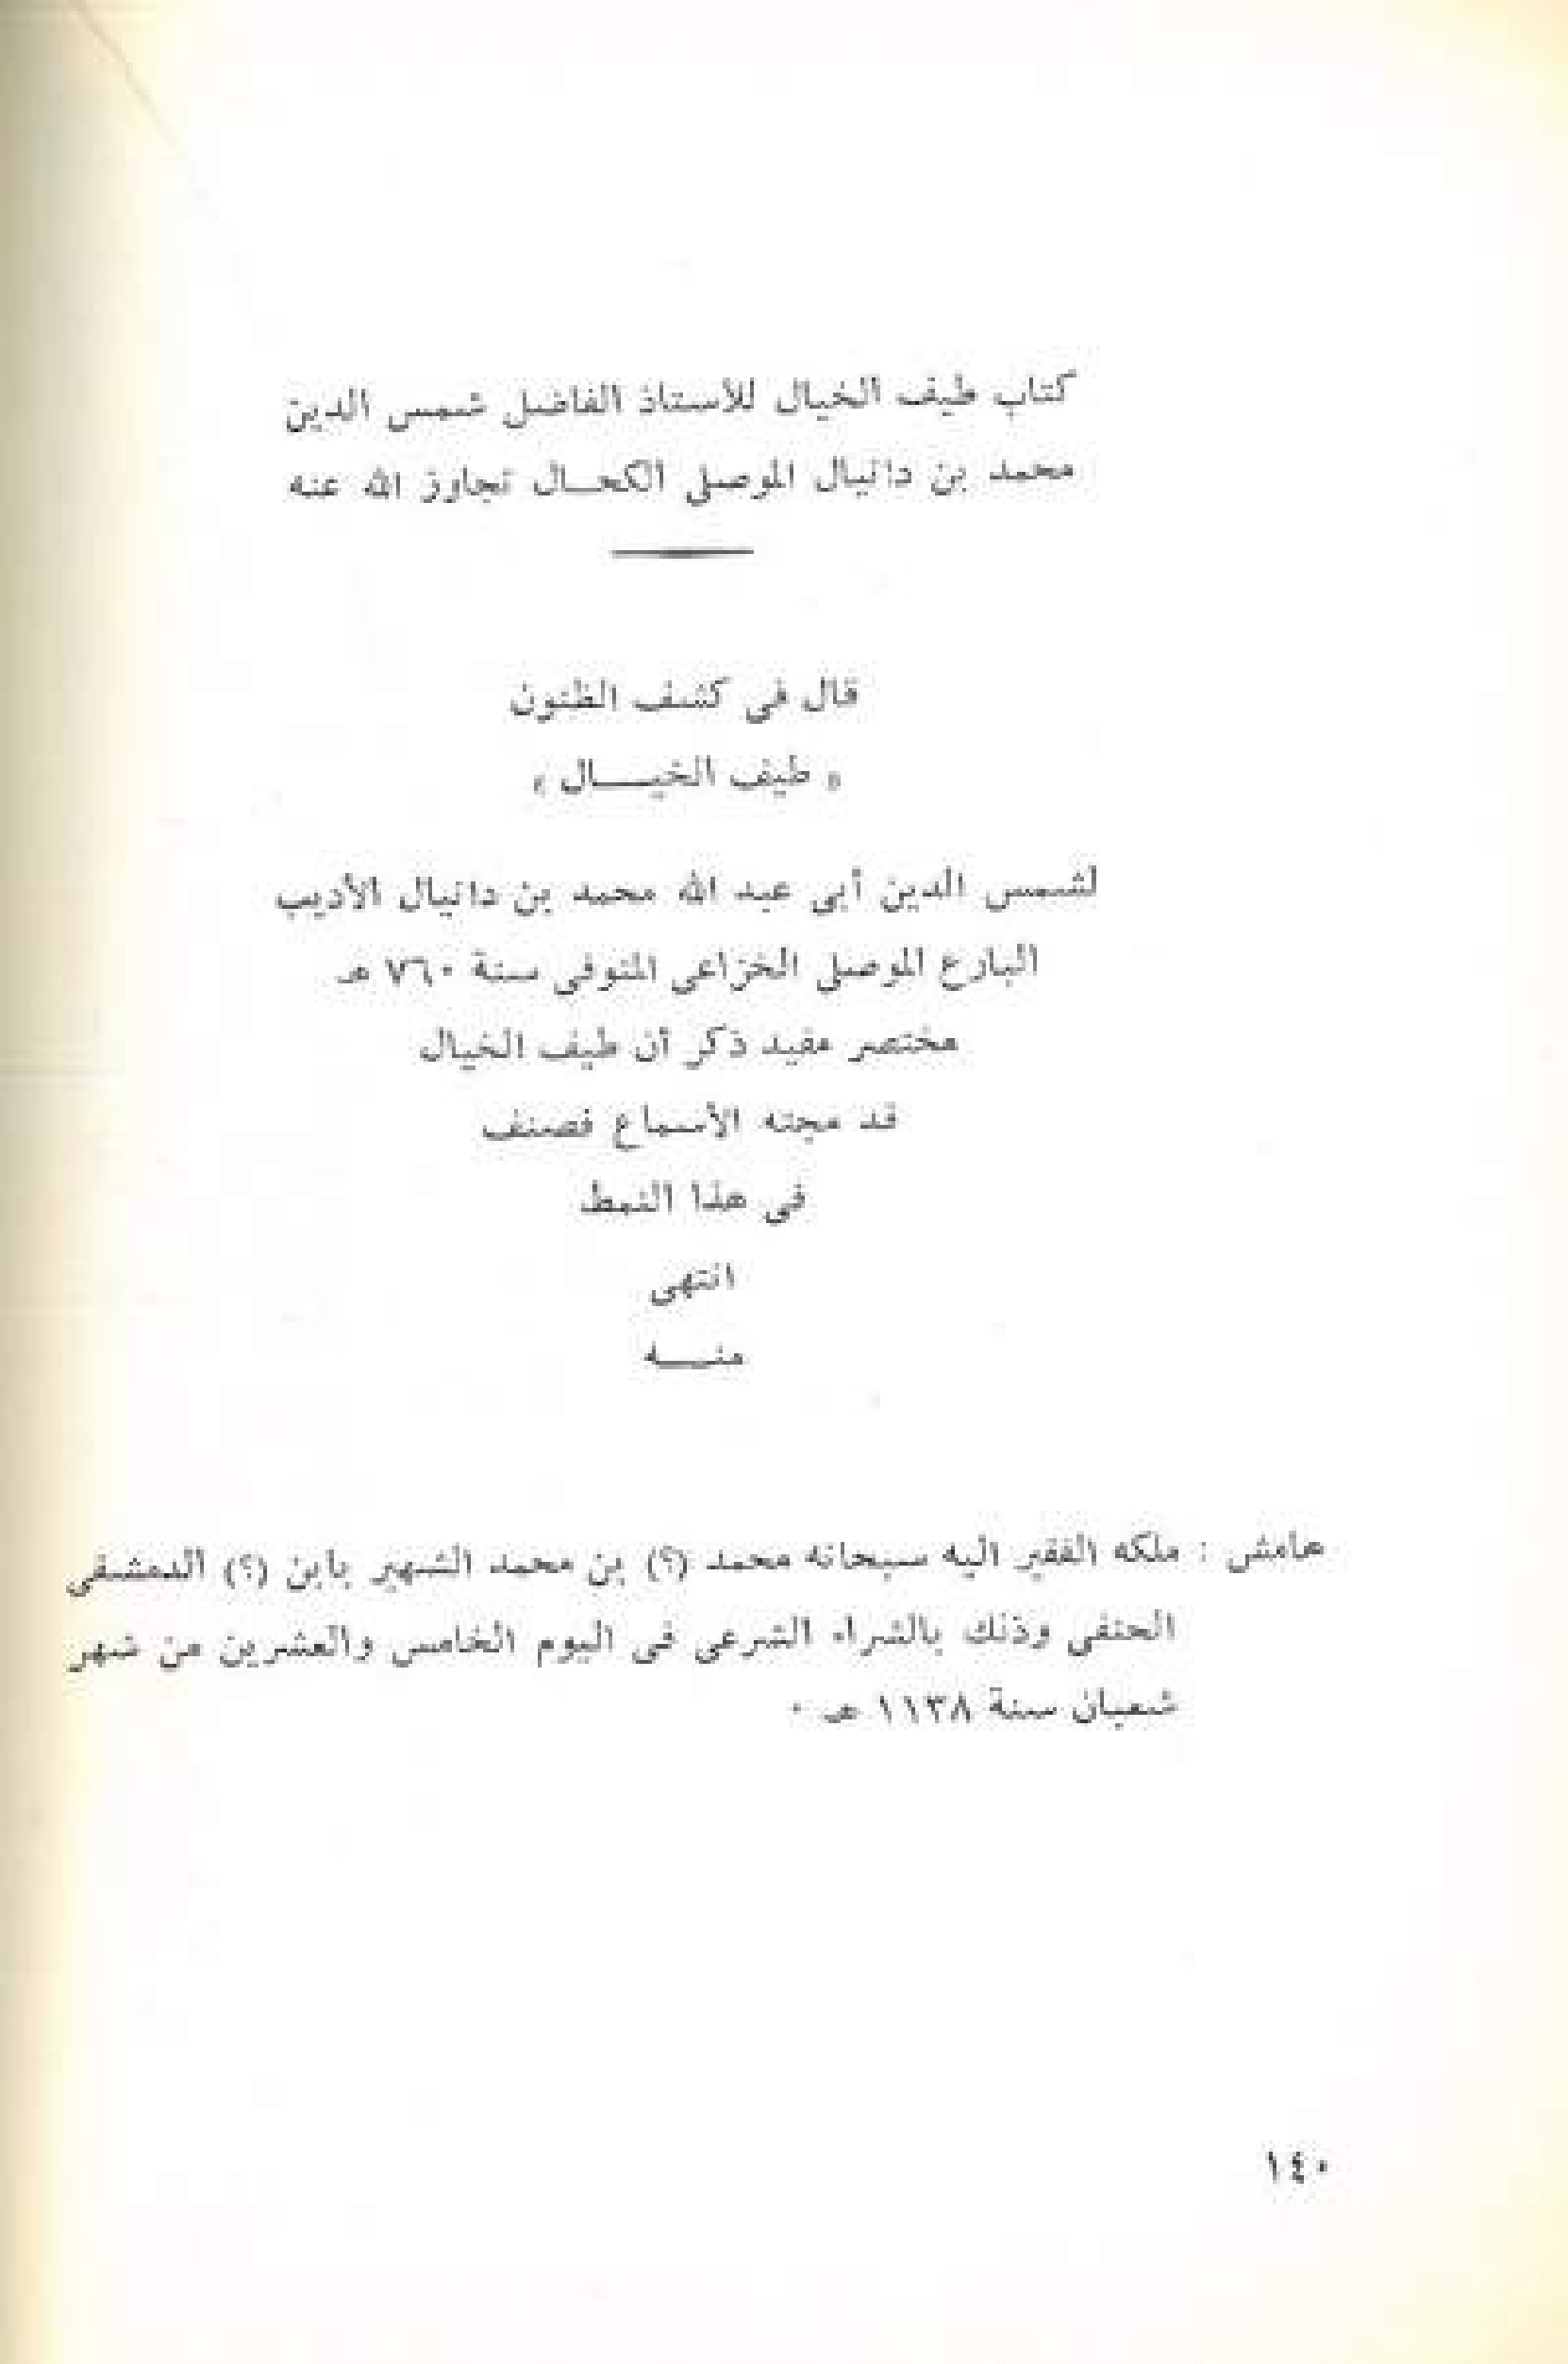 كتاب طيف الخيال للأستاذ الفاضل شمس الدين
محمد بن دانيال الموصلي الكحـال تجاوز الله عنه
قال في كشف الظنون
« طيف الخيـــال »
لشمس الدين أبي عبد الله محمد بن دانيال الأديب
البارع الموصلي الخزاعي المتوفى سنة ٧٦٠ هـ
مختصر مفيد ذكر أن طيف الخيال
قد مجته الأسماع فصنف
في هذا النمط
انتهى
منـــه
هامش : ملكه الفقير اليه سبحانه محمد (؟) بن محمد الشهير بابن (؟) الدمشقي
الحنفي وذلك بالشراء الشرعي في اليوم الخامس والعشرين من شهر
شعبان سنة ١١٣٨ هـ ٠
١٤٠